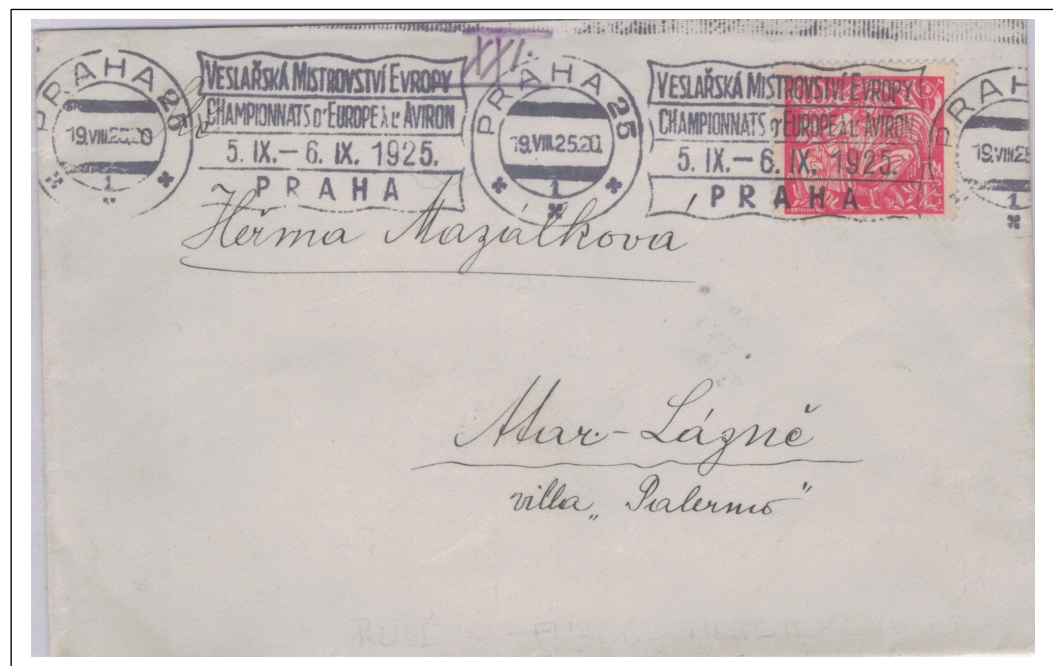 XXI.
PRAHA 25
19.VIII.25.20
1
VESLAŘSKÁ MISTROVSTVÍ EVROPY
CHAMPIONNATS D'EUROPE À L'AVIRON
5. IX. – 6. IX. 1925.
PRAHA
PRAHA 25
19.VIII.25.20
1
VESLAŘSKÁ MISTROVSTVÍ EVROPY
CHAMPIONNATS D'EUROPE À L'AVIRON
5. IX. – 6. IX. 1925.
PRAHA
PRAH
19.VIII.25
1
Heřma Mazálkova
Mar.-Lázně
villa „Palermo"